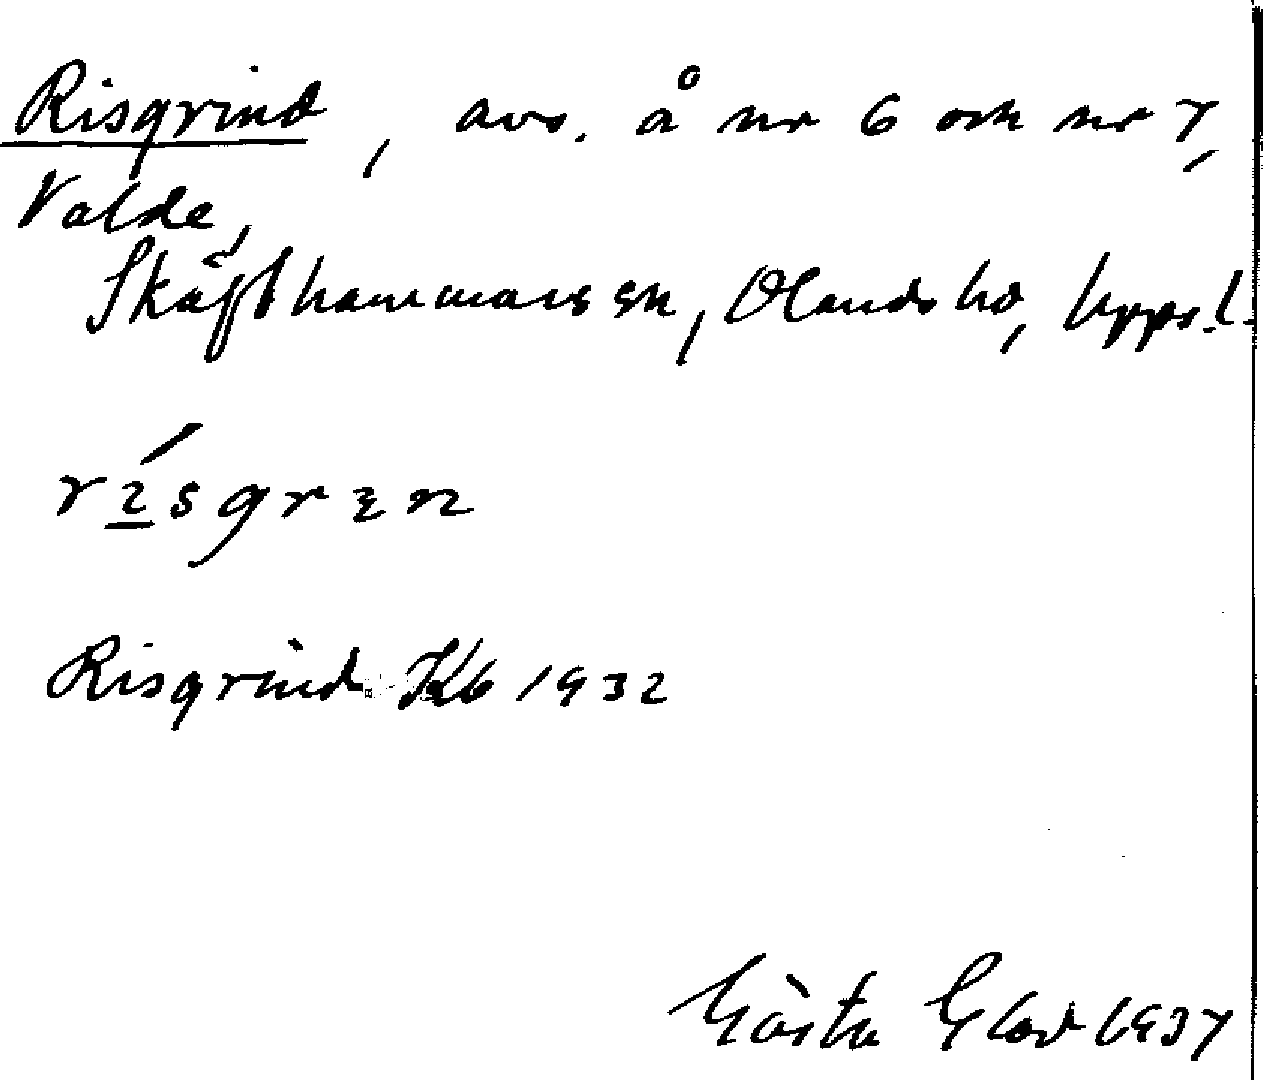 Risgrind, avs. å nr 6 och nr 7,
Valde,
Skäfthammars sn, Olands hd, Upps. l.
rísgrɛn
Risgrind Kb 1932
Gösta Glad 1937